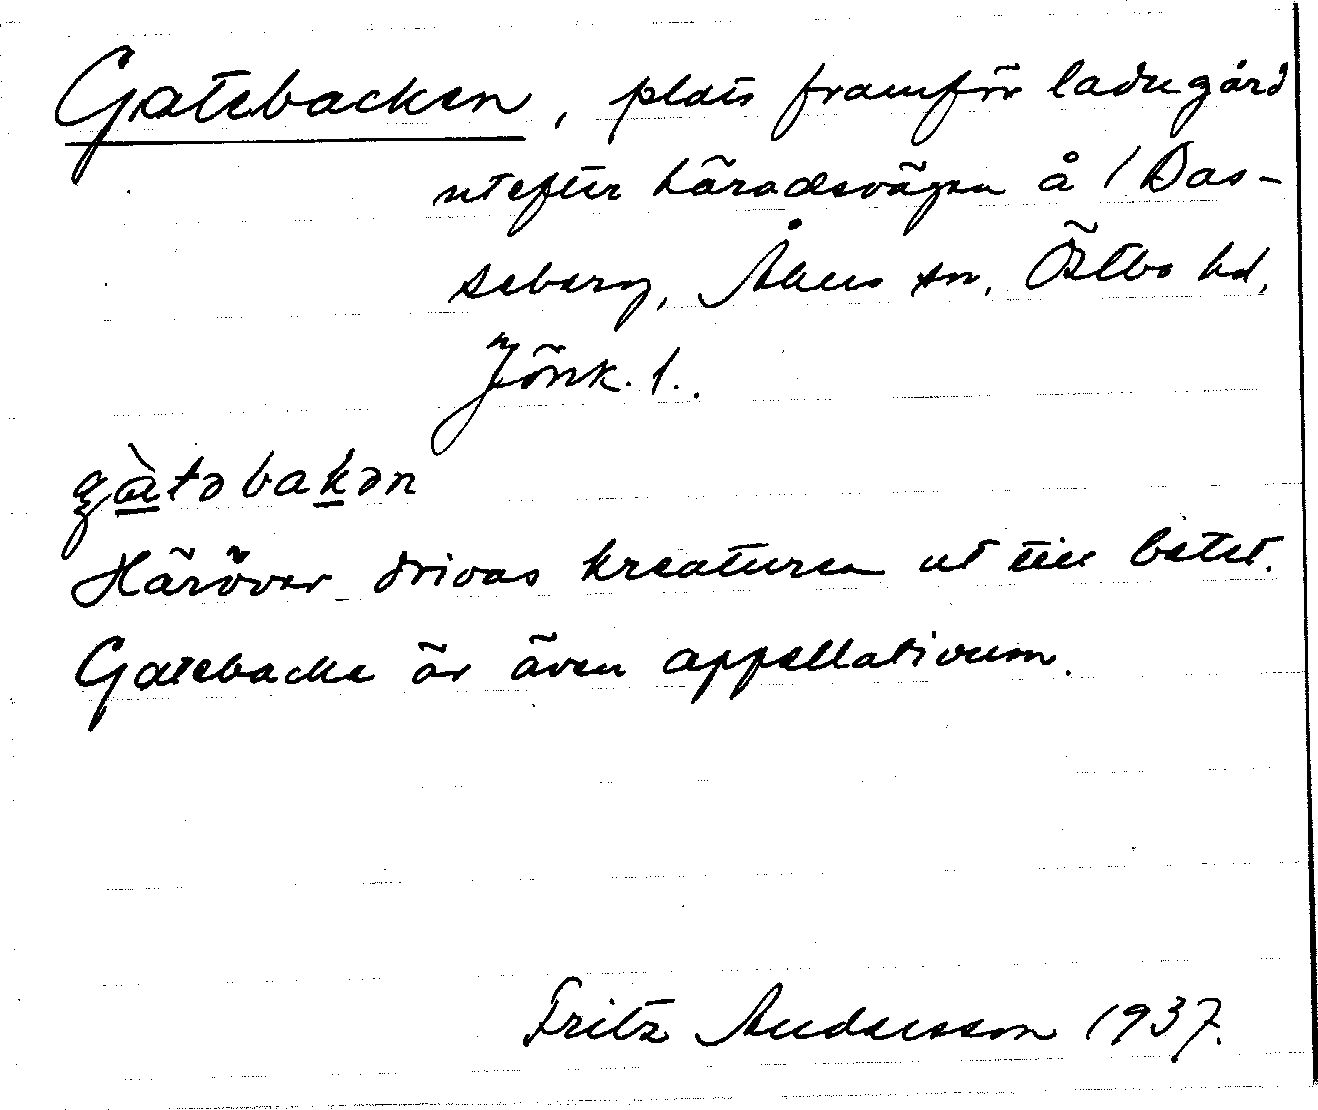 Gatebacken, plats framför ladugård
utefter häradsvägen å 1 Das-
seberg, Åkers sn, Östbo hd,
Jönk. l.
gàtəbakən
Häröver drivas kreaturen ut till betet.
Gatebacke är även appellativum.
Fritz Andersson 1937.